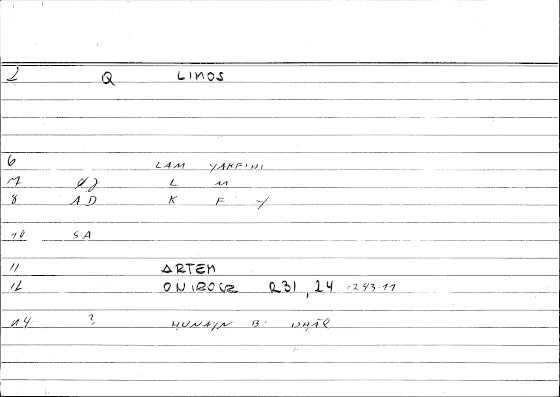 2 Q LINOS
6 LAM YAKFINI
7 L M
8 AD K F Y
10 SA
11 ARTEM
12 ONIROCR 231, 24 :243-11
14 ? HUNAYN B. ISHĀQ